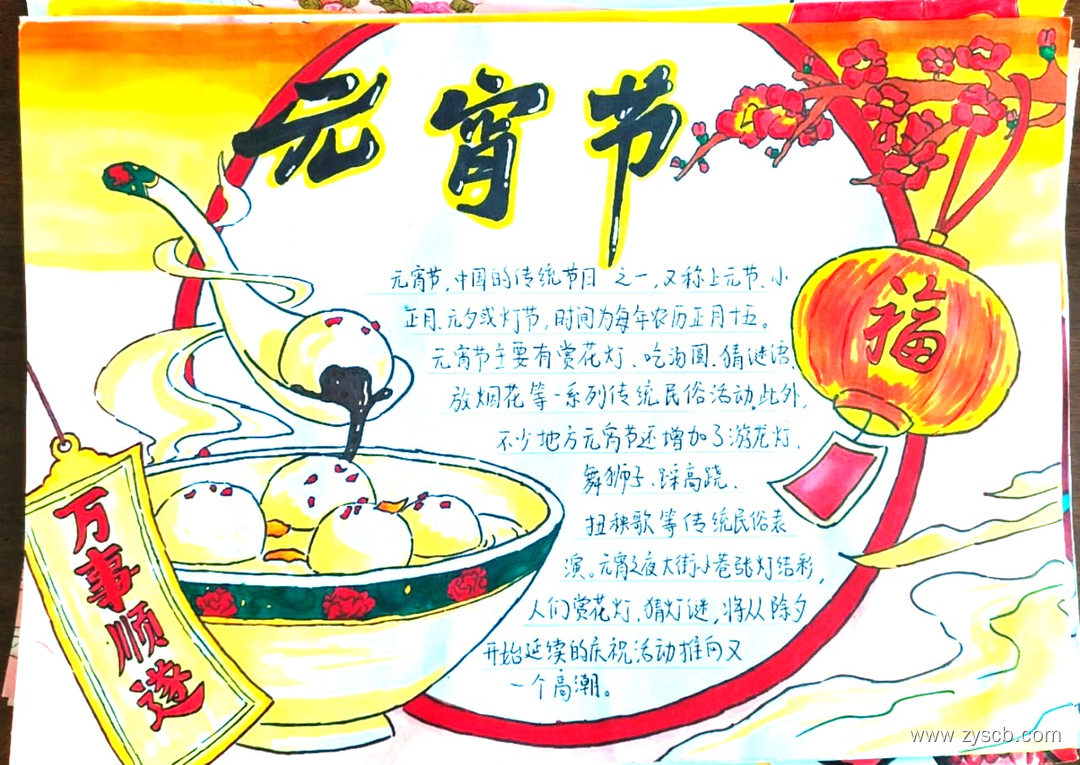 元宵节
元宵节,中国的传统节日之一,又称上元节、小
正月、元夕或灯节,时间为每年农历正月十五。
元宵节主要有赏花灯、吃汤圆、猜谜语、
放烟花等一系列传统民俗活动。此外,
不少地方元宵节还增加了游龙灯、
舞狮子、踩高跷、
扭秧歌等传统民俗表
演。元宵之夜大街小巷张灯结彩,
人们赏花灯、猜灯谜,将从除夕
开始延续的庆祝活动推向又
一个高潮。
福
万事顺遂
www.zyscb.com